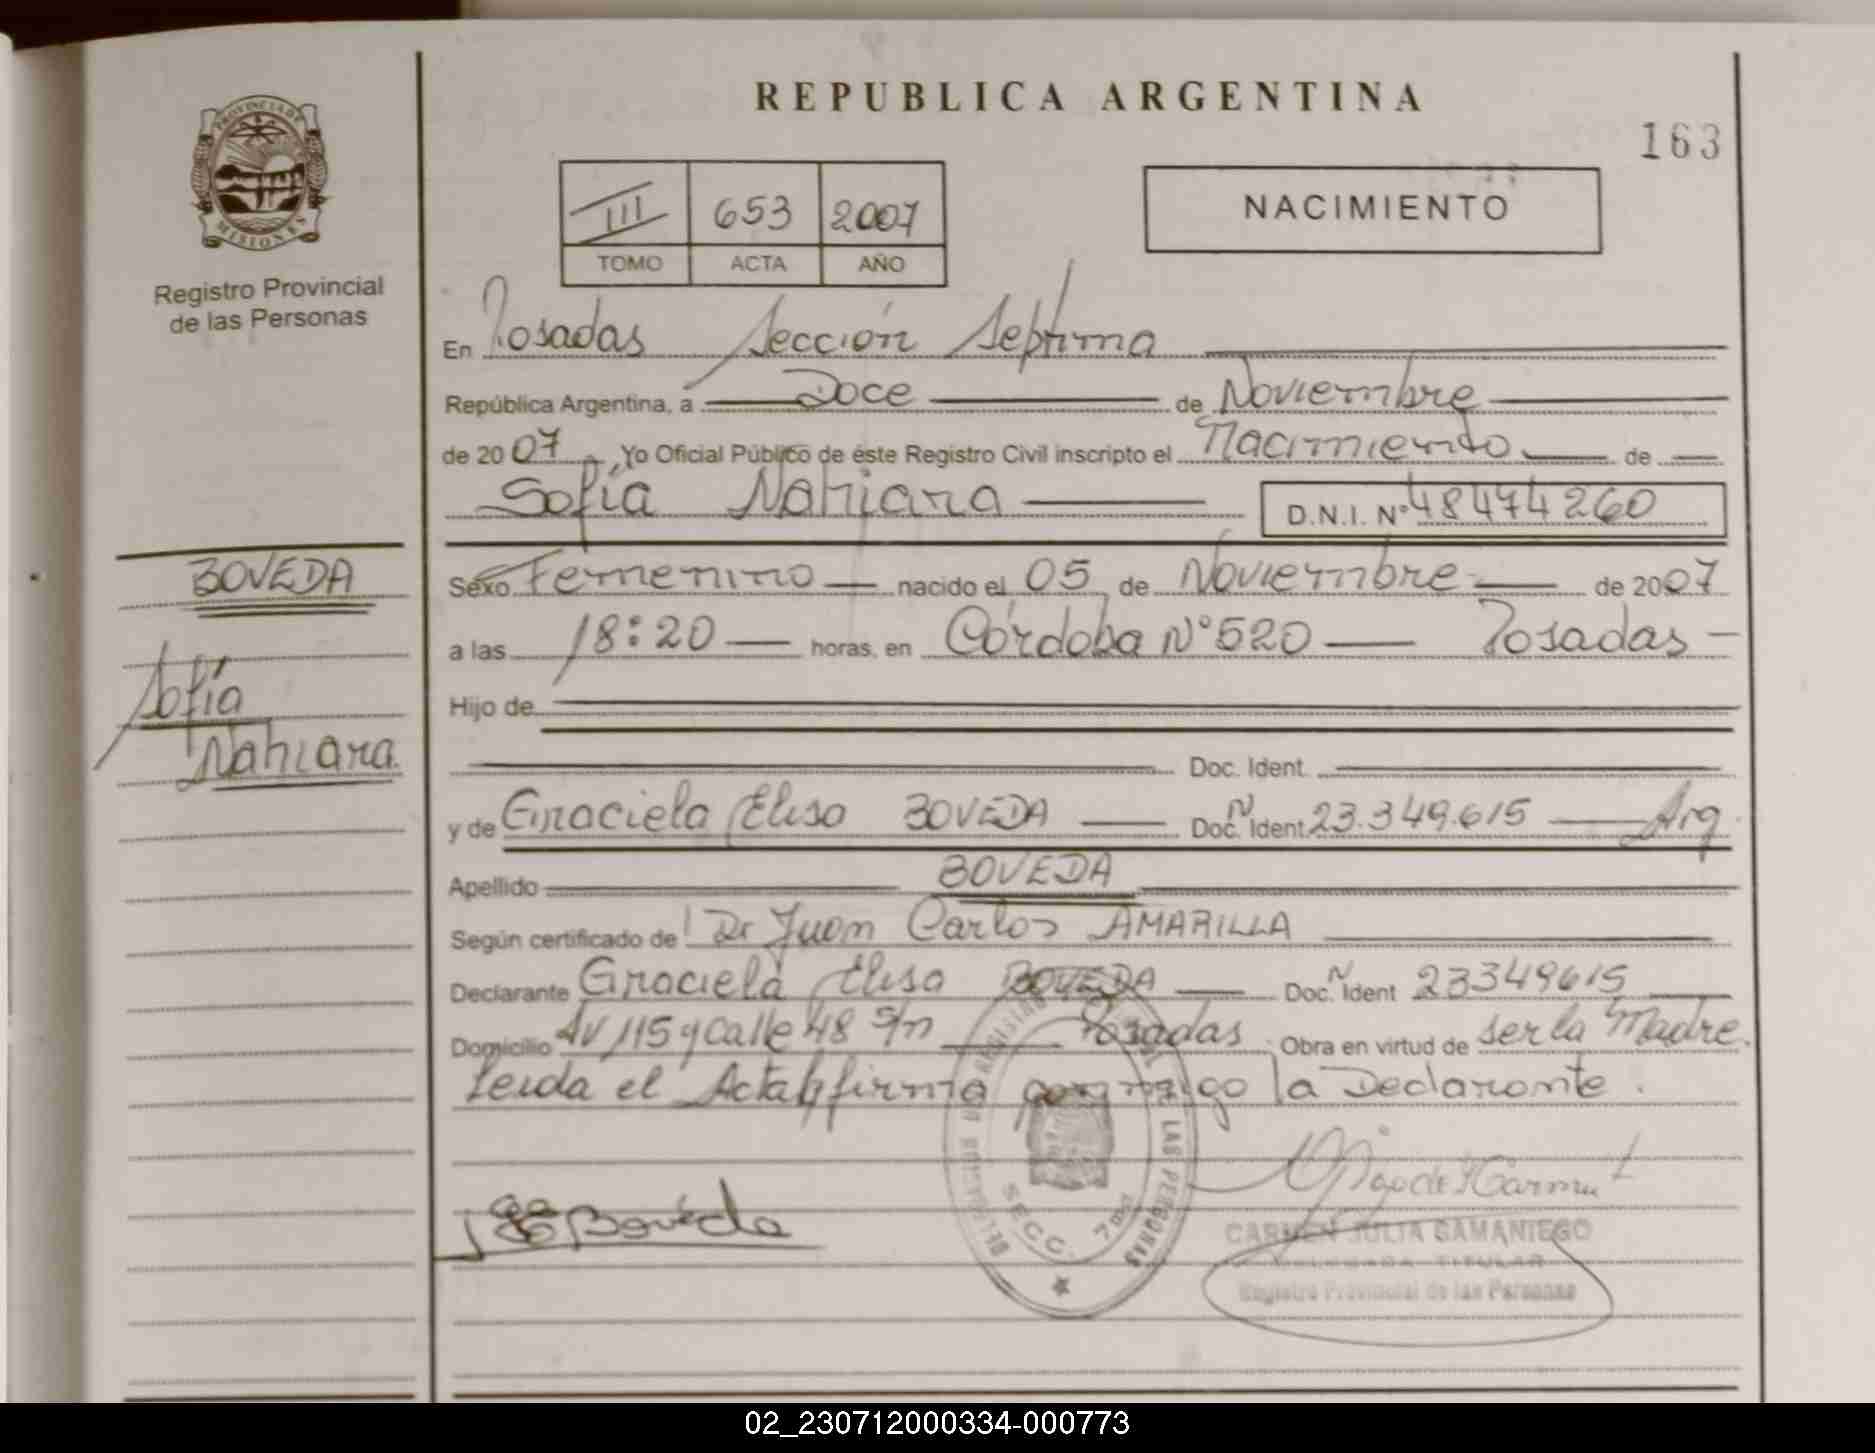 REPUBLICA ARGENTINA
163
PROVINCIA DE
MISIONES
Registro Provincial
de las Personas
III 653 2007
TOMO ACTA AÑO
NACIMIENTO
En Posadas Sección Septima
República Argentina, a Doce de Noviembre
de 2007, Yo Oficial Público de éste Registro Civil inscripto el Nacimiento de
Sofía Nahiara D.N.I. Nº 48474260
BOVEDA
Sofía
Nahiara.
Sexo Femenino nacido el 05 de Noviembre de 2007
a las 18:20 horas, en Córdoba Nº 520 Posadas
Hijo de
Doc. Ident.
y de Graciela Elisa BOVEDA Doc. N Ident. 23.349.615 Arg.
Apellido BOVEDA
Según certificado de Dr Juan Carlos AMARILLA
Declarante Graciela Elisa BOVEDA Doc. N Ident 23349615
Domicilio AV 115 y calle 48 s/n Posadas Obra en virtud de ser la Madre.
Leida el Acta firma conmigo la Declarante.
Boveda
DE LAS PERSONAS
SECC. 7ma
CARMEN JULIA SAMANIEGO
DELEGADA TITULAR
Registro Provincial de las Personas
02_230712000334-000773